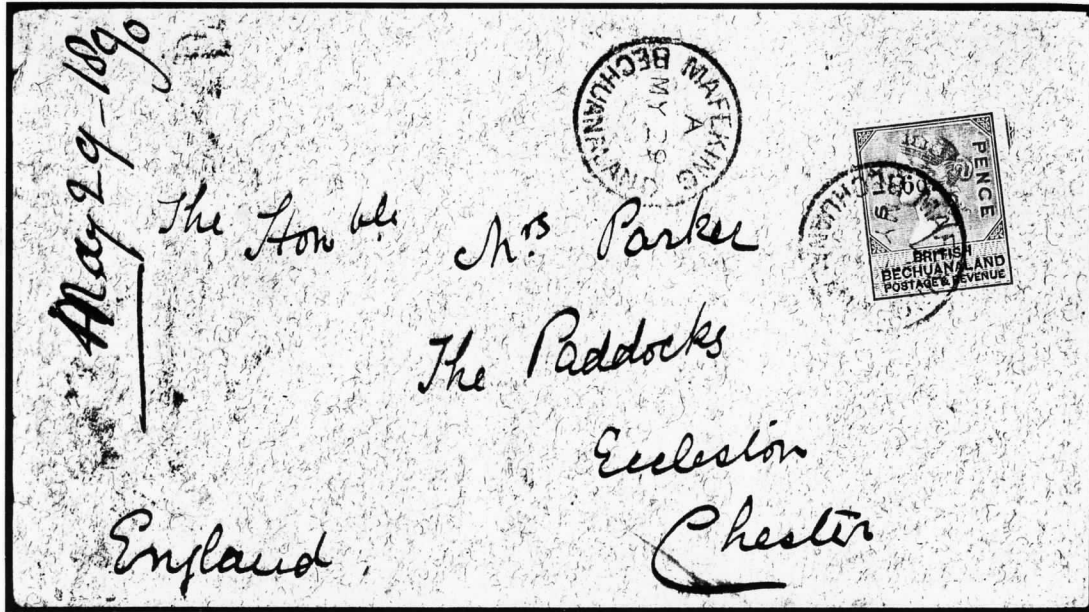 May 29-1890
MAFEKING
A
MY 29
BECHUANALAND
PENCE
BRITISH
BECHUANALAND
POSTAGE & REVENUE
The Honble Mrs Parker
The Paddocks
Eccleston
Chester
England